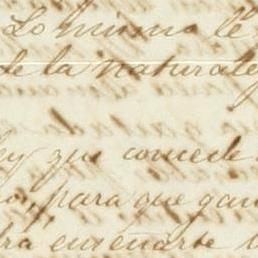 Lo mismo le
de la naturale
ley que concede
para que gan
ra enseñarte